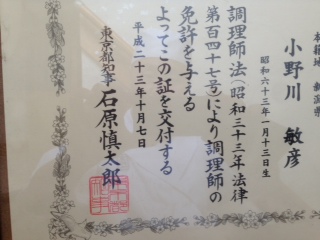 本籍地 新潟県
小野川 敏彦
昭和六十三年一月十三日生
調理師法(昭和三十三年法律
第百四十七号)により調理師の
免許を与える
よってこの証を交付する
平成二十三年十月七日
東京都知事 石原慎太郎